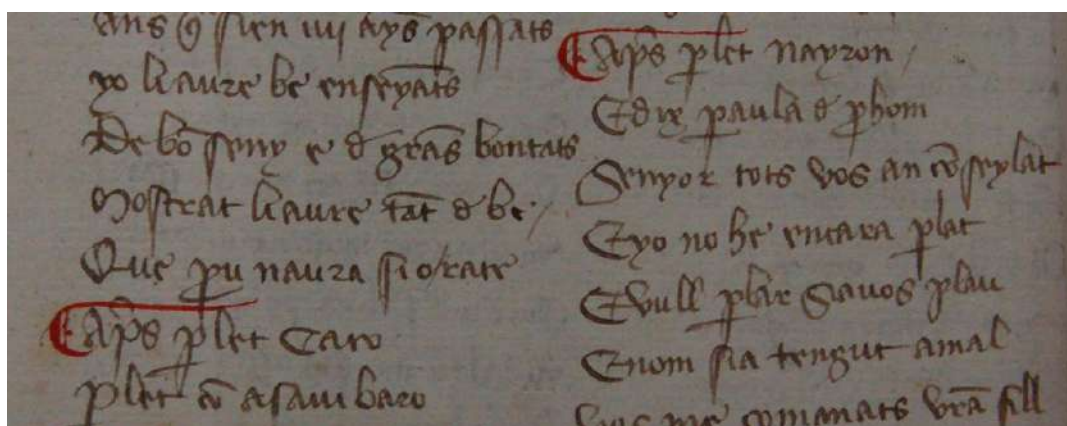 ans q̄ sien iiij ays̄ passats
yo li aure be ensenyats
De bō seny e d̄ grās bontats
Mostrat li aure tāt d̄ be /
Que pu naura si orate
Ap̄s p̱let Cato
p̱let cō a sauj baro
Ap̄s p̱let nayron /
E dix paula d̄ p̱hom
Senyor tots vos an cō seylat
E yo no he encara p̱lat
E vull p̱lar Si a vos plau
E nom sia tengut a mal
me comanats vr̄a fill